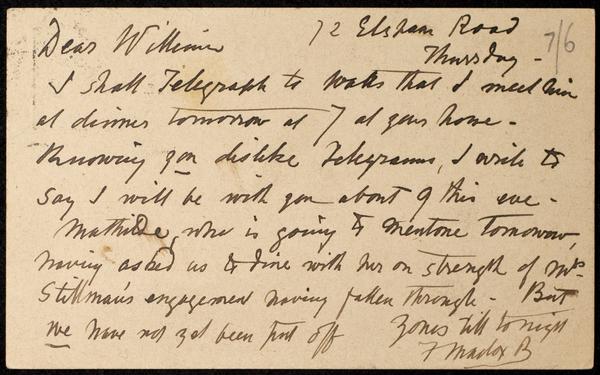 72 Elsham Road
7/6
Dear William
Thursday -
I shall Telegraph to Watts that I meet him
at dinner tomorrow at 7 at your house -
Knowing you dislike Telegrams, I write to
say I will be with you about 9 this eve -
Mathilde, who is going to Mentone tomorrow,
having asked us to dine with her on strength of Mrs
Stillman's engagement having fallen through - But
we have not yet been put off
Yours till tonight
F Madox B